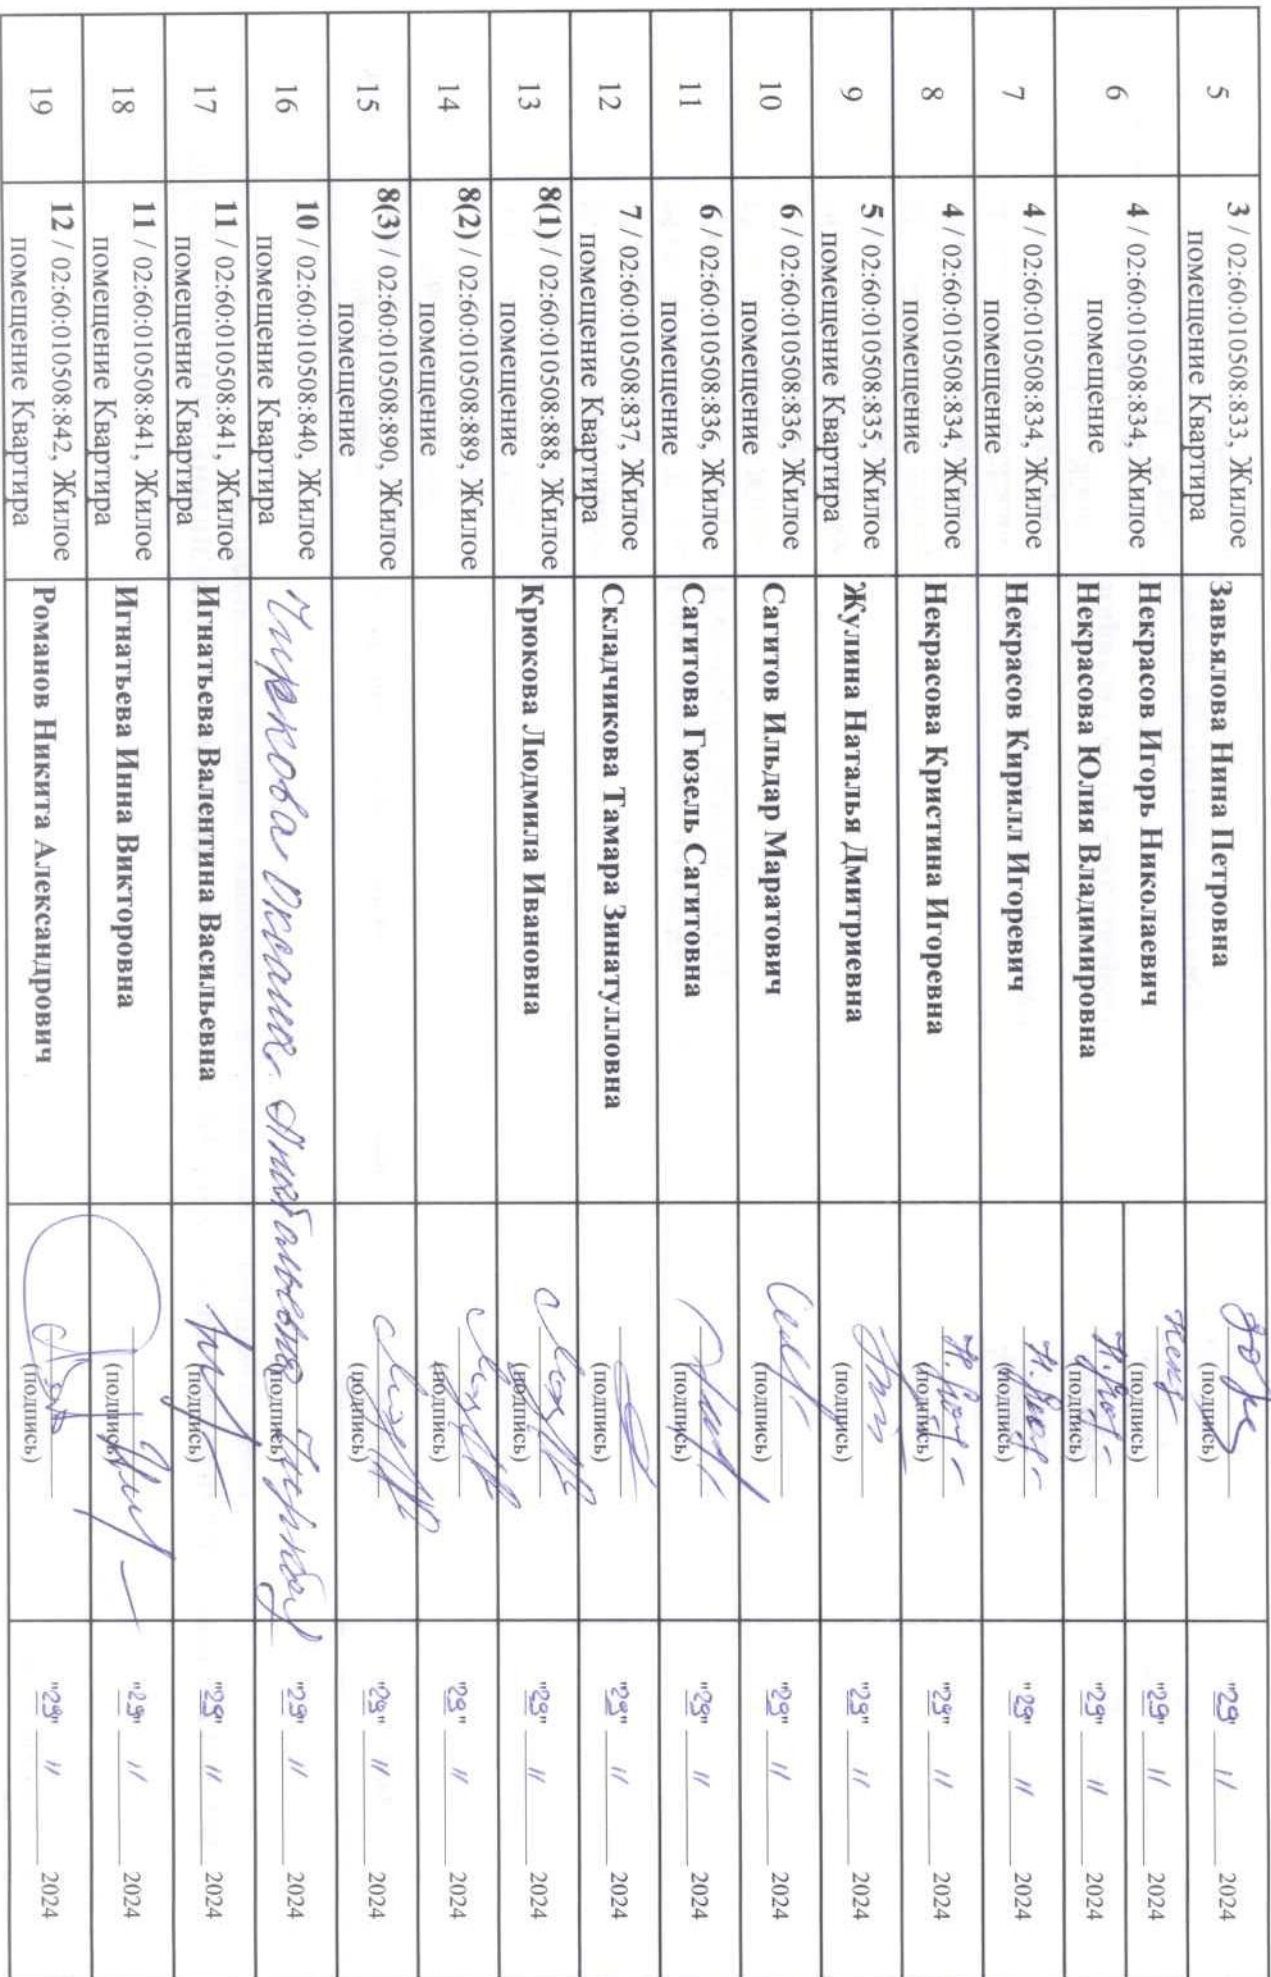 5
3 / 02:60:010508:833, Жилое
помещение Квартира
Завьялова Нина Петровна
(подпись)
"29" 11 2024
6
4 / 02:60:010508:834, Жилое
помещение
Некрасов Игорь Николаевич
(подпись)
"29" 11 2024
Некрасова Юлия Владимировна
(подпись)
"29" 11 2024
7
4 / 02:60:010508:834, Жилое
помещение
Некрасов Кирилл Игоревич
(подпись)
"29" 11 2024
8
4 / 02:60:010508:834, Жилое
помещение
Некрасова Кристина Игоревна
(подпись)
"29" 11 2024
9
5 / 02:60:010508:835, Жилое
помещение Квартира
Жулина Наталья Дмитриевна
(подпись)
"29" 11 2024
10
6 / 02:60:010508:836, Жилое
помещение
Сагитов Ильдар Маратович
(подпись)
"29" 11 2024
11
6 / 02:60:010508:836, Жилое
помещение
Сагитова Гюзель Сагитовна
(подпись)
"29" 11 2024
12
7 / 02:60:010508:837, Жилое
помещение Квартира
Складчикова Тамара Зинатулловна
(подпись)
"29" 11 2024
13
8(1) / 02:60:010508:888, Жилое
помещение
Крюкова Людмила Ивановна
(подпись)
"29" 11 2024
14
8(2) / 02:60:010508:889, Жилое
помещение
(подпись)
"29" 11 2024
15
8(3) / 02:60:010508:890, Жилое
помещение
(подпись)
"29" 11 2024
16
10 / 02:60:010508:840, Жилое
помещение Квартира
Чиркова Оксана Анатольевна
(подпись)
"29" 11 2024
17
11 / 02:60:010508:841, Жилое
помещение Квартира
Игнатьева Валентина Васильевна
(подпись)
"29" 11 2024
18
11 / 02:60:010508:841, Жилое
помещение Квартира
Игнатьева Инна Викторовна
(подпись)
"29" 11 2024
19
12 / 02:60:010508:842, Жилое
помещение Квартира
Романов Никита Александрович
(подпись)
"29" 11 2024